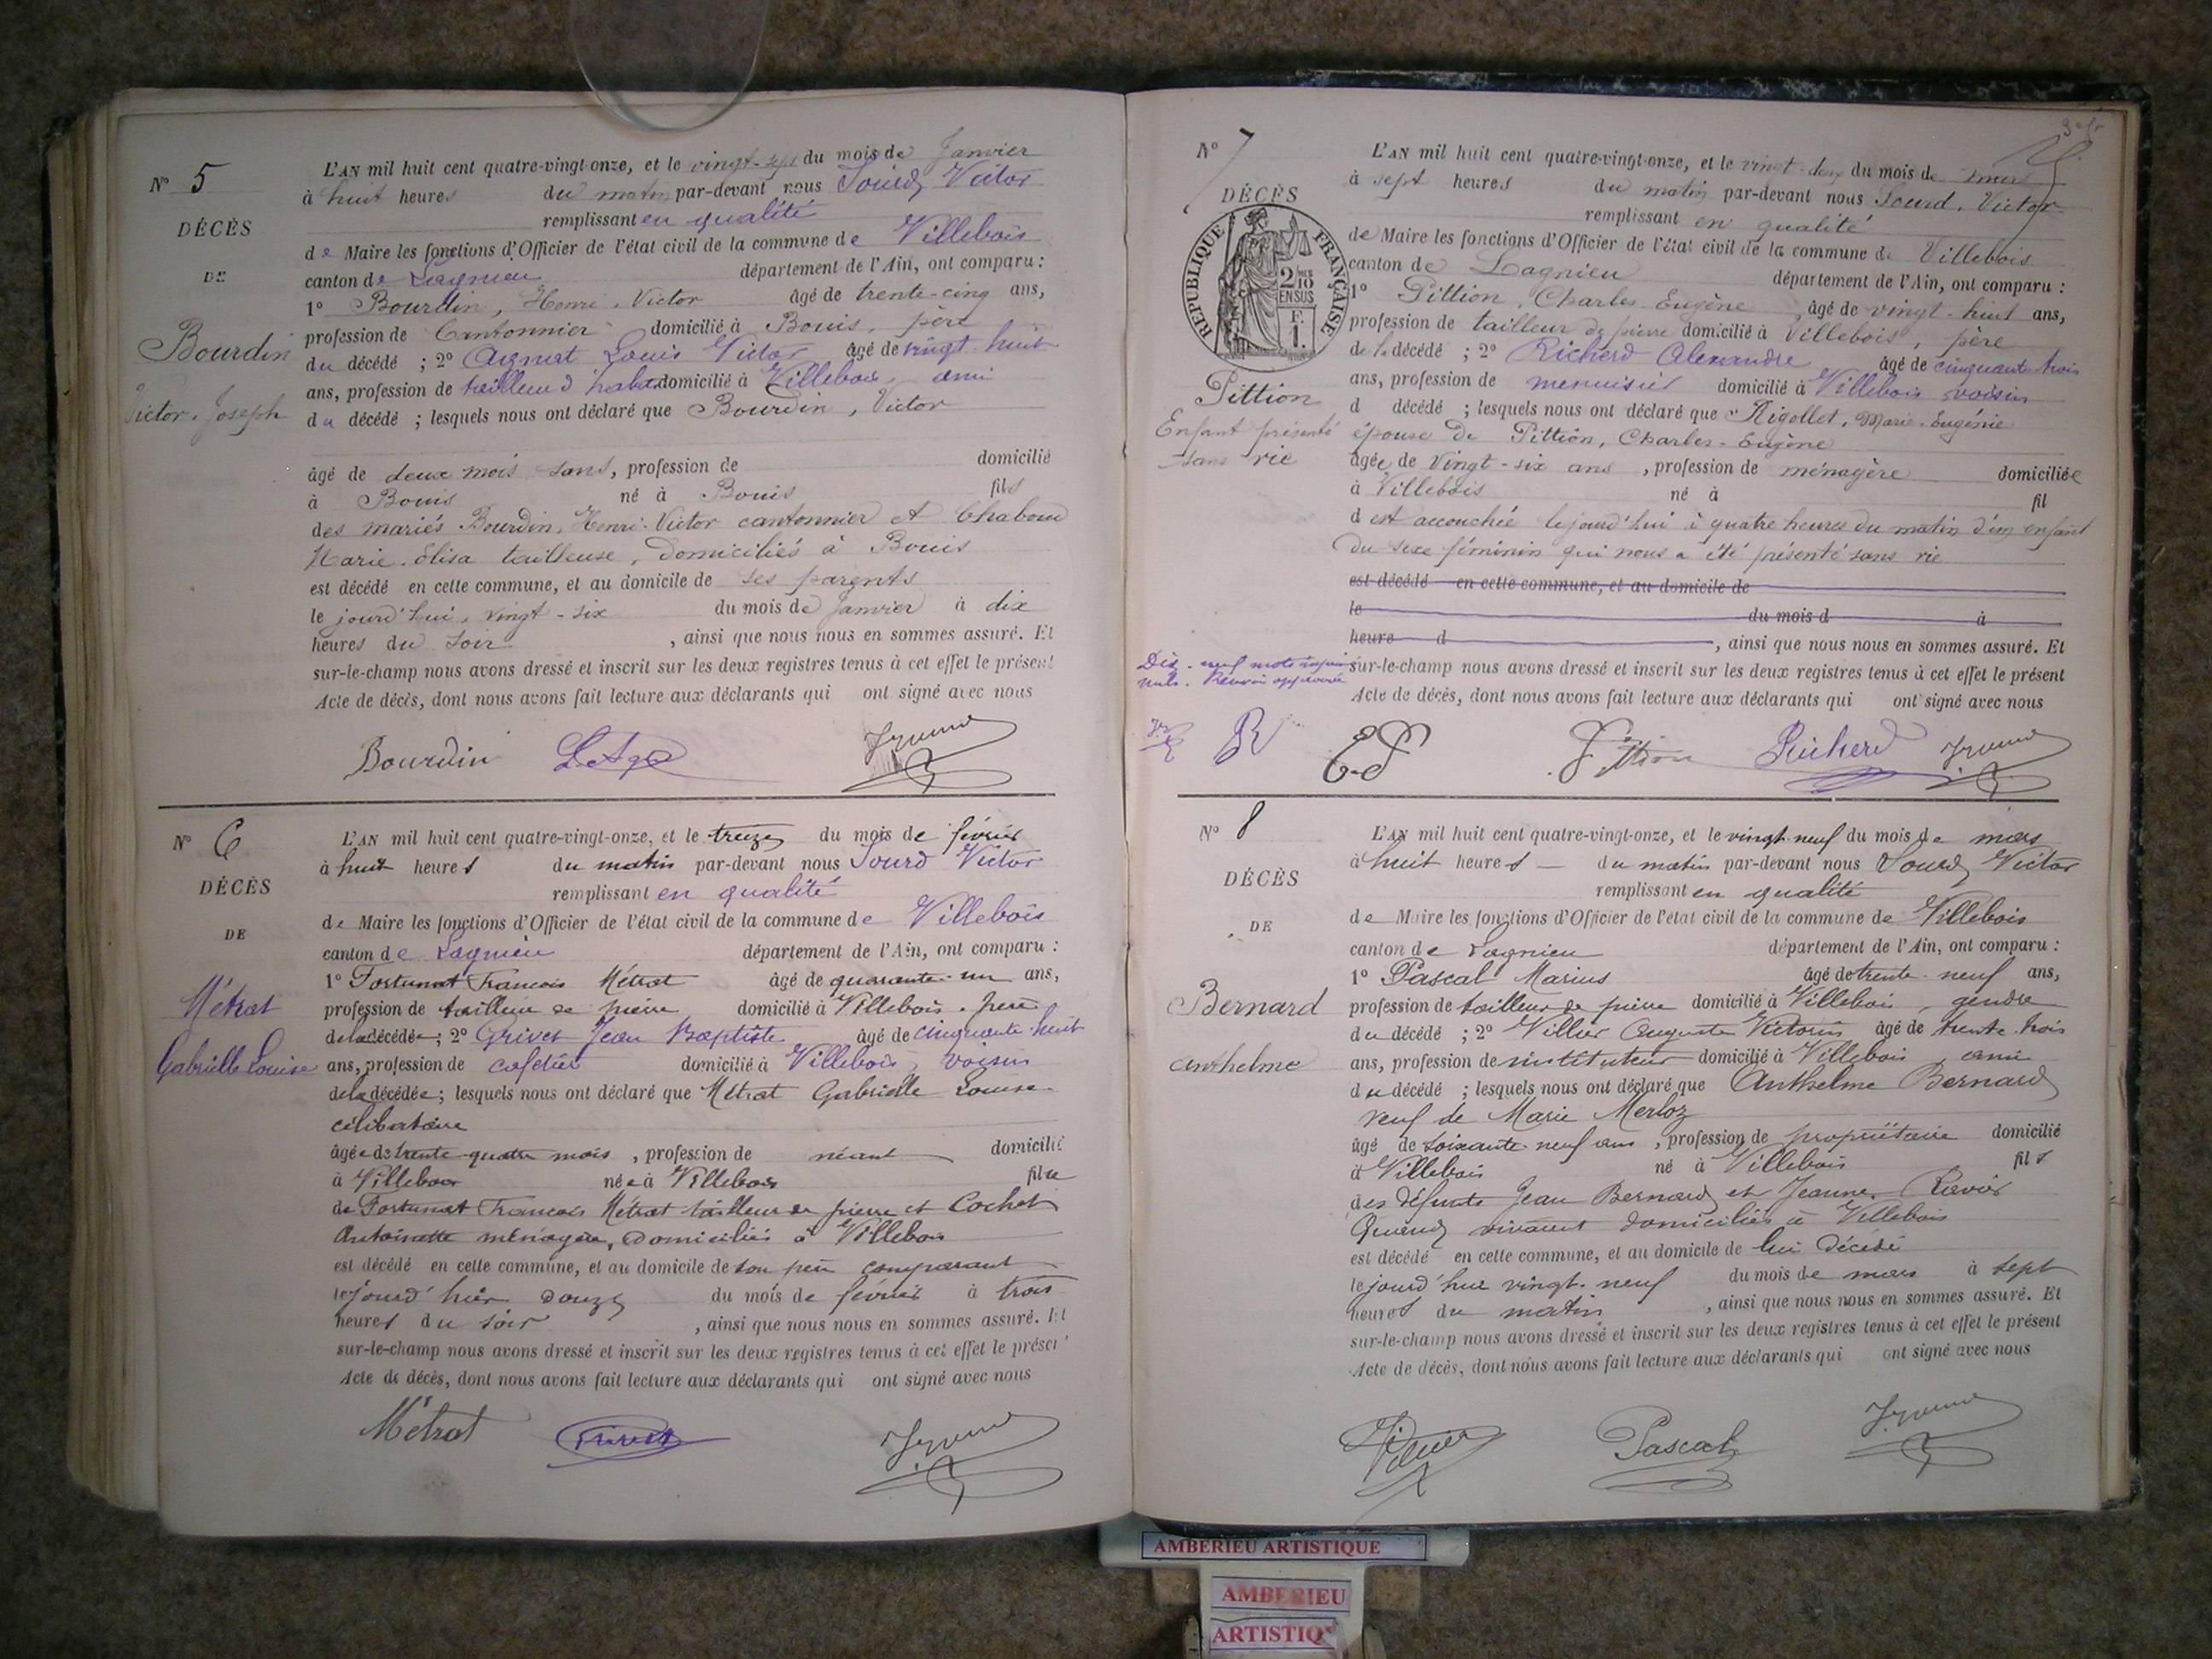 N° 5
DÉCÈS
DE
Bourdin
Victor, Joseph
L'AN mil huit cent quatre-vingt-onze, et le vingt-sept du mois de Janvier
à huit heures du matin par-devant nous Sourd, Victor
remplissant en qualité
de Maire les fonctions d'Officier de l'état civil de la commune de Villebois
canton de Lagnieu département de l'Ain, ont comparu :
1° Bourdin, Henri, Victor âgé de trente-cinq ans,
profession de Cantonnier domicilié à Bouis, père
du décédé ; 2° Louis Victor âgé de vingt-huit
ans, profession de tailleur d'habits domicilié à Villebois, ami
du décédé ; lesquels nous ont déclaré que Bourdin, Victor
âgé de deux mois sans, profession de domicilié
à Bouis né à Bouis fils
des mariés Bourdin, Henri-Victor cantonnier et Chaboud
Marie-Elisa tailleuse, domiciliés à Bouis
est décédé en cette commune, et au domicile de ses parents
le jourd'hui, vingt-six du mois de Janvier à dix
heures du soir , ainsi que nous nous en sommes assuré. Et
sur-le-champ nous avons dressé et inscrit sur les deux registres tenus à cet effet le présent
Acte de décès, dont nous avons fait lecture aux déclarants qui ont signé avec nous
Bourdin
N° 6
DÉCÈS
DE
Métrat
Gabrielle Louise
L'AN mil huit cent quatre-vingt-onze, et le treize du mois de février
à huit heures du matin par-devant nous Sourd Victor
remplissant en qualité
de Maire les fonctions d'Officier de l'état civil de la commune de Villebois
canton de Lagnieu département de l'Ain, ont comparu :
1° Fortunat François Métrat âgé de quarante-un ans,
profession de tailleur de pierre domicilié à Villebois, père
de la décédée ; 2° Grivet Jean Baptiste âgé de cinquante-huit
ans, profession de cafetier domicilié à Villebois, voisin
de la décédée ; lesquels nous ont déclaré que Métrat Gabrielle Louise
célibataire
âgée de trente-quatre mois , profession de néant domicilié
à Villebois née à Villebois fille
de Fortunat François Métrat tailleur de pierre et Cochet
Antoinette ménagère, domiciliés à Villebois
est décédé en cette commune, et au domicile de son père comparant
le jourd'hier douze du mois de février à trois
heures du soir , ainsi que nous nous en sommes assuré. Et
sur-le-champ nous avons dressé et inscrit sur les deux registres tenus à cet effet le présent
Acte de décès, dont nous avons fait lecture aux déclarants qui ont signé avec nous
Métrat Grivet
N° 7
DÉCÈS
RÉPUBLIQUE FRANÇAISE
2/10 EN SUS
F.
1.
Pittion
Enfant présenté
sans vie
L'AN mil huit cent quatre-vingt-onze, et le vingt-deux du mois de mars
à sept heures du matin par-devant nous Sourd, Victor
remplissant en qualité
de Maire les fonctions d'Officier de l'état civil de la commune de Villebois
canton de Lagnieu département de l'Ain, ont comparu :
1° Pittion, Charles-Eugène, âgé de vingt-huit ans,
profession de tailleur de pierre domicilié à Villebois, père
de la décédé ; 2° Richerd Alexandre âgé de cinquante trois
ans, profession de menuisier domicilié à Villebois voisin
d décédé ; lesquels nous ont déclaré que Rigollet, Marie-Eugénie
épouse de Pittion, Charles-Eugène
âgée de Vingt-six ans , profession de ménagère domiciliée
à Villebois né à fil
d est accouchée le jourd'hui à quatre heures du matin d'un enfant
du sexe féminin qui nous a été présenté sans vie
est décédé en cette commune, et au domicile de
le du mois d à
heure d , ainsi que nous nous en sommes assuré. Et
Dix-neuf mots rayés
nuls. Renvoi approuvé
sur-le-champ nous avons dressé et inscrit sur les deux registres tenus à cet effet le présent
Acte de décès, dont nous avons fait lecture aux déclarants qui ont signé avec nous
Pittion Richerd
N° 8
DÉCÈS
DE
Bernard
Anthelme
L'AN mil huit cent quatre-vingt-onze, et le vingt-neuf du mois de mars
à huit heures du matin par-devant nous Sourd Victor
remplissant en qualité
de Maire les fonctions d'Officier de l'état civil de la commune de Villebois
canton de Lagnieu département de l'Ain, ont comparu :
1° Pascal Marius âgé de trente-neuf ans,
profession de tailleur de pierre domicilié à Villebois, gendre
du décédé ; 2° Villier Auguste Victorin âgé de trente-trois
ans, profession de instituteur domicilié à Villebois, ami
du décédé ; lesquels nous ont déclaré que Anthelme Bernard
veuf de Marie Merloz
âgé de soixante neuf ans , profession de propriétaire domicilié
à Villebois né à Villebois fils
des défunts Jean Bernard et Jeanne Ravier
Quand vivaient domiciliés à Villebois
est décédé en cette commune, et au domicile de lui décédé
le jourd'hui vingt-neuf du mois de mars à sept
heures du matin , ainsi que nous nous en sommes assuré. Et
sur-le-champ nous avons dressé et inscrit sur les deux registres tenus à cet effet le présent
Acte de décès, dont nous avons fait lecture aux déclarants qui ont signé avec nous
Villier Pascal
AMBERIEU ARTISTIQUE
AMBERIEU
ARTISTIQ